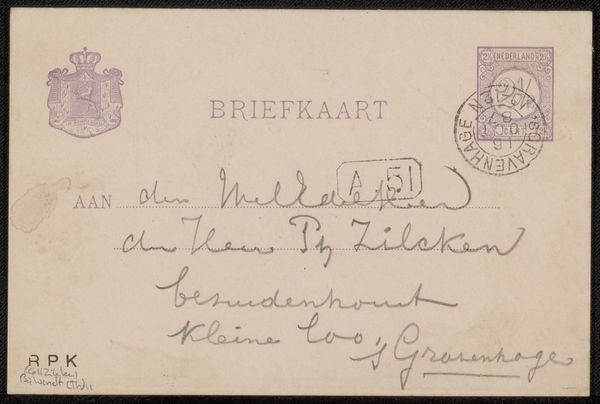 2½ NEDERLAND 2½
BRIEFKAART
'SGRAVENHAGE
16 OCT 87
A 51
AAN den WelEd
den Heer Ph Zilcken
bezuidenhout
kleine Loo,
's Gravenhage
RPK
(coll Zilcken)